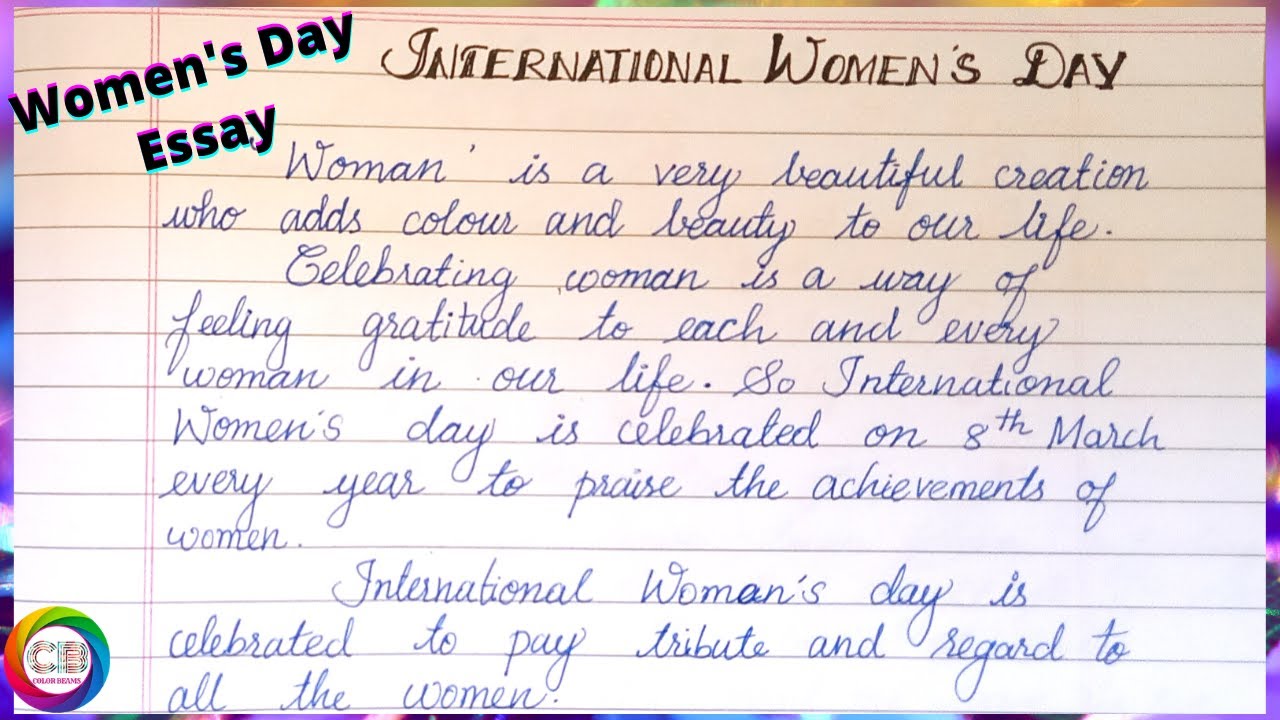 Women's Day
Essay
INTERNATIONAL WOMEN'S DAY
'Woman' is a very beautiful creation
who adds colour and beauty to our life.
Celebrating woman is a way of
feeling gratitude to each and every
woman in our life. So International
Women's day is celebrated on 8th March
every year to praise the achievements of
women.
International Woman's day is
celebrated to pay tribute and regard to
all the women.
CB
COLOR BEAMS